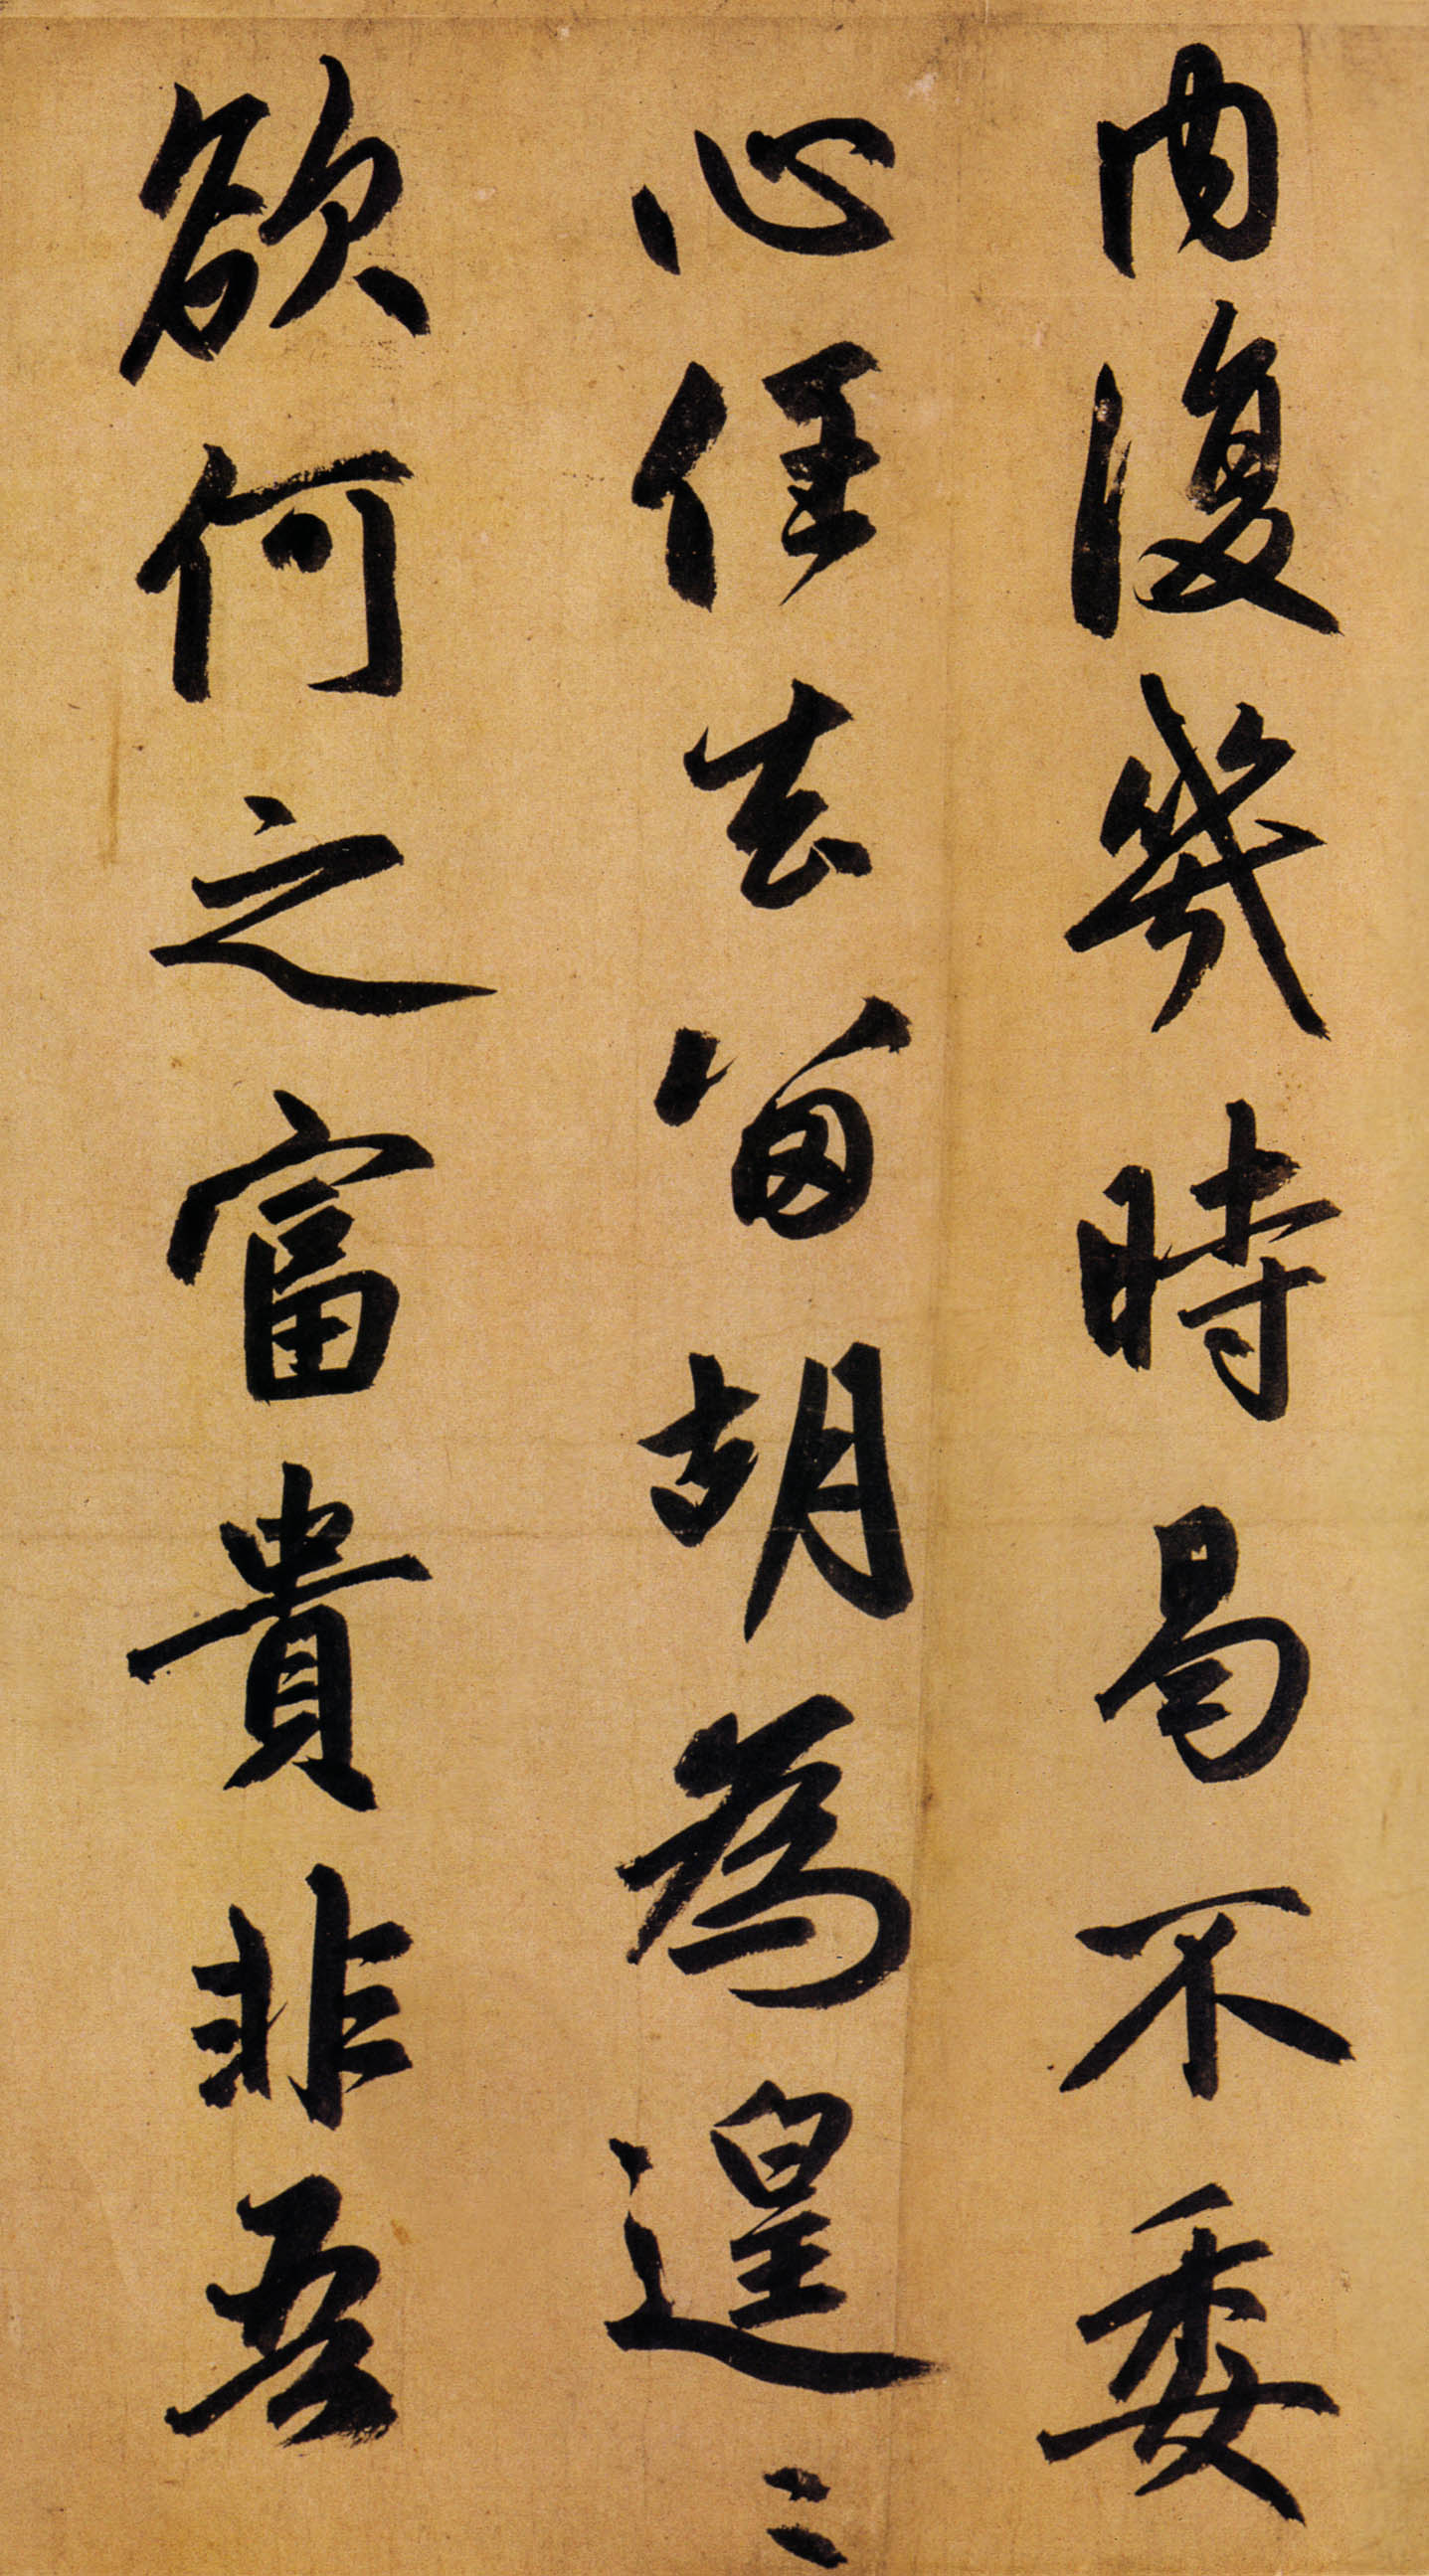 內復幾時曷不委
心任去留胡為遑〻
欲何之富貴非吾